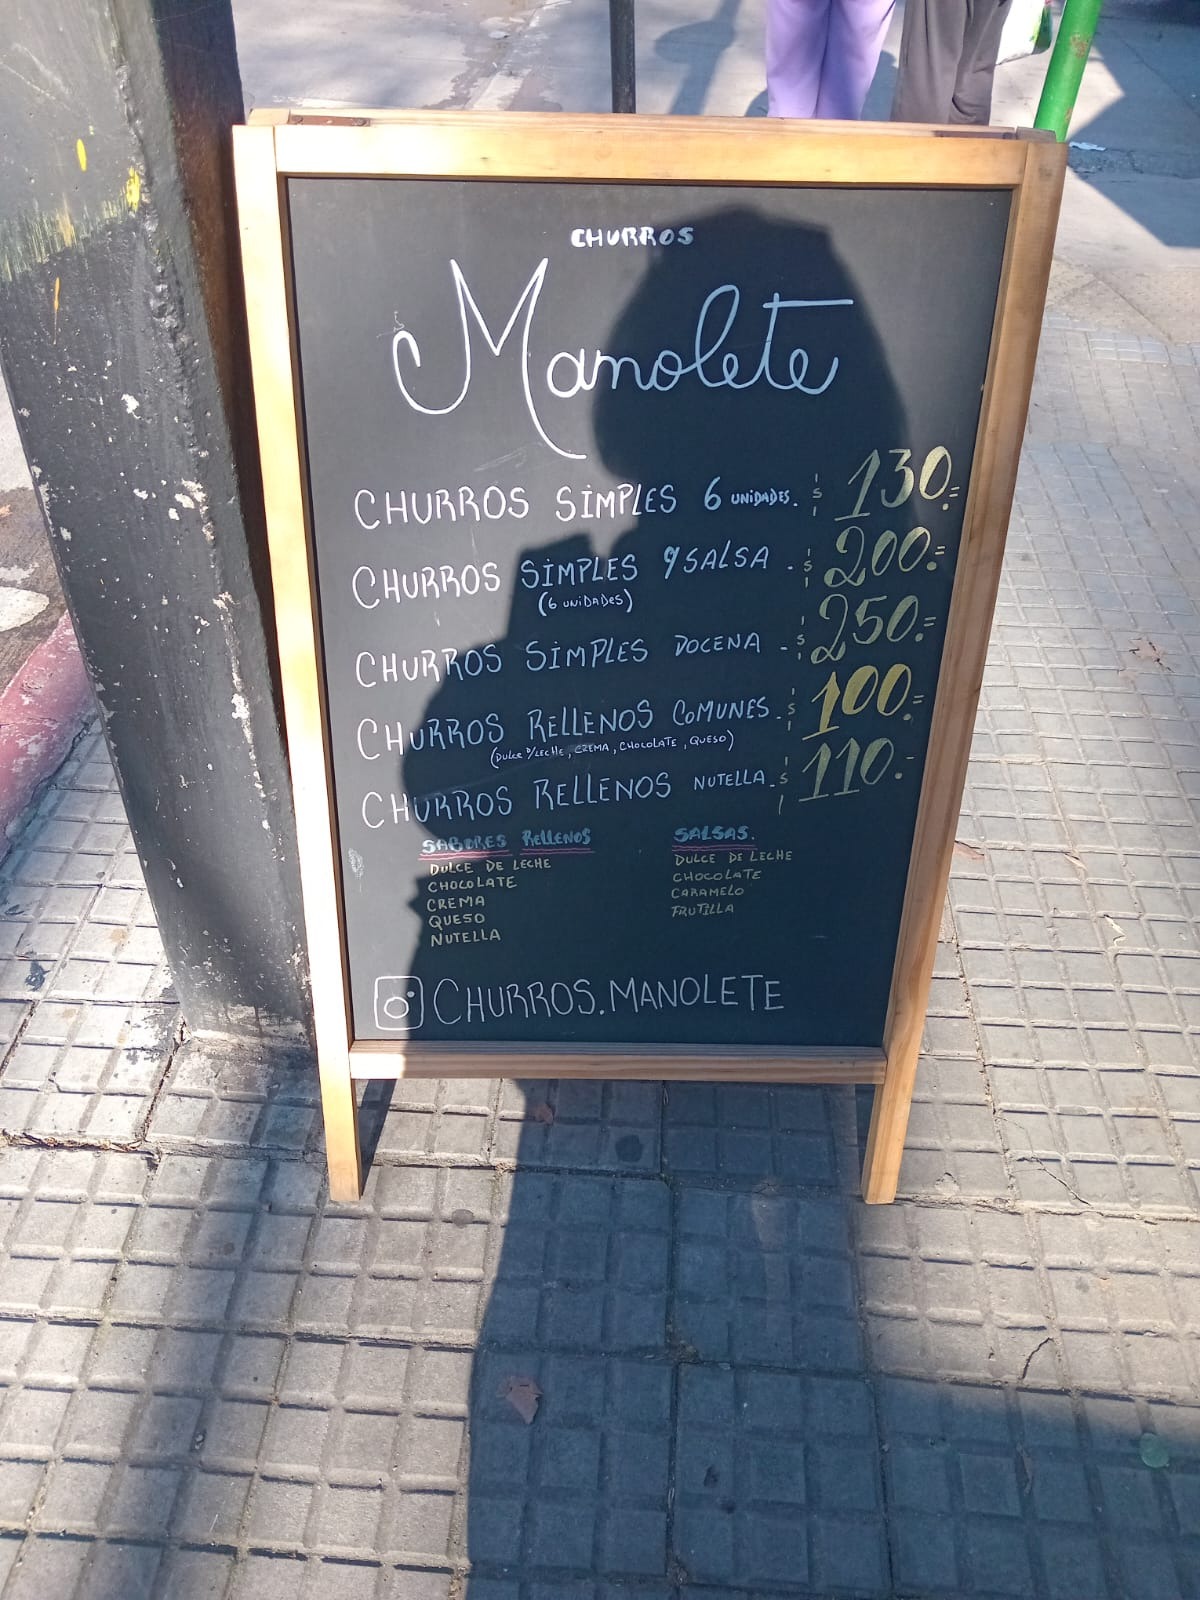 CHURROS
Manolete
CHURROS SIMPLES 6 UNIDADES. $ 130.=
CHURROS SIMPLES C/SALSA . $ 200.=
(6 UNIDADES)
CHURROS SIMPLES DOCENA - $ 250.=
CHURROS RELLENOS COMUNES. $ 100.=
(DULCE D/LECHE, CREMA, CHOCOLATE, QUESO)
CHURROS RELLENOS NUTELLA. $ 110.-
SABORES RELLENOS
DULCE DE LECHE
CHOCOLATE
CREMA
QUESO
NUTELLA
SALSAS.
DULCE DE LECHE
CHOCOLATE
CARAMELO
FRUTILLA
CHURROS.MANOLETE